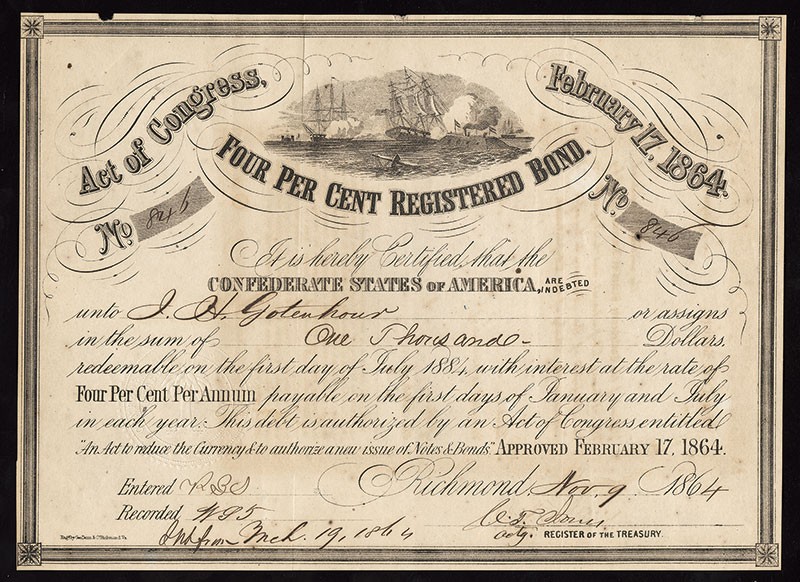 Act of Congress,
February 17, 1864.
FOUR PER CENT REGISTERED BOND.
No. 846
No. 846
It is hereby Certified, that the
CONFEDERATE STATES OF AMERICA, ARE INDEBTED
unto J. H. Gotenhour or assigns
in the sum of One Thousand Dollars.
redeemable on the first day of July 1884, with interest at the rate of
Four Per Cent Per Annum payable on the first days of January and July
in each year. This debt is authorized by an Act of Congress entitled
"An Act to reduce the Currency & to authorize a new issue of Notes & Bonds." APPROVED FEBRUARY 17, 1864.
Entered Richmond, Nov. 9 1864
Recorded
from Mch. 19, 1864 actg. REGISTER OF THE TREASURY.